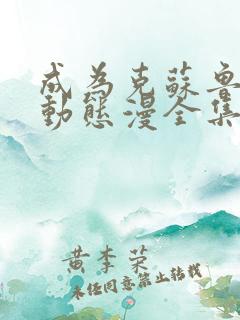 成為克蘇魯
動態漫全集
黄李荣
未经同意禁止转载